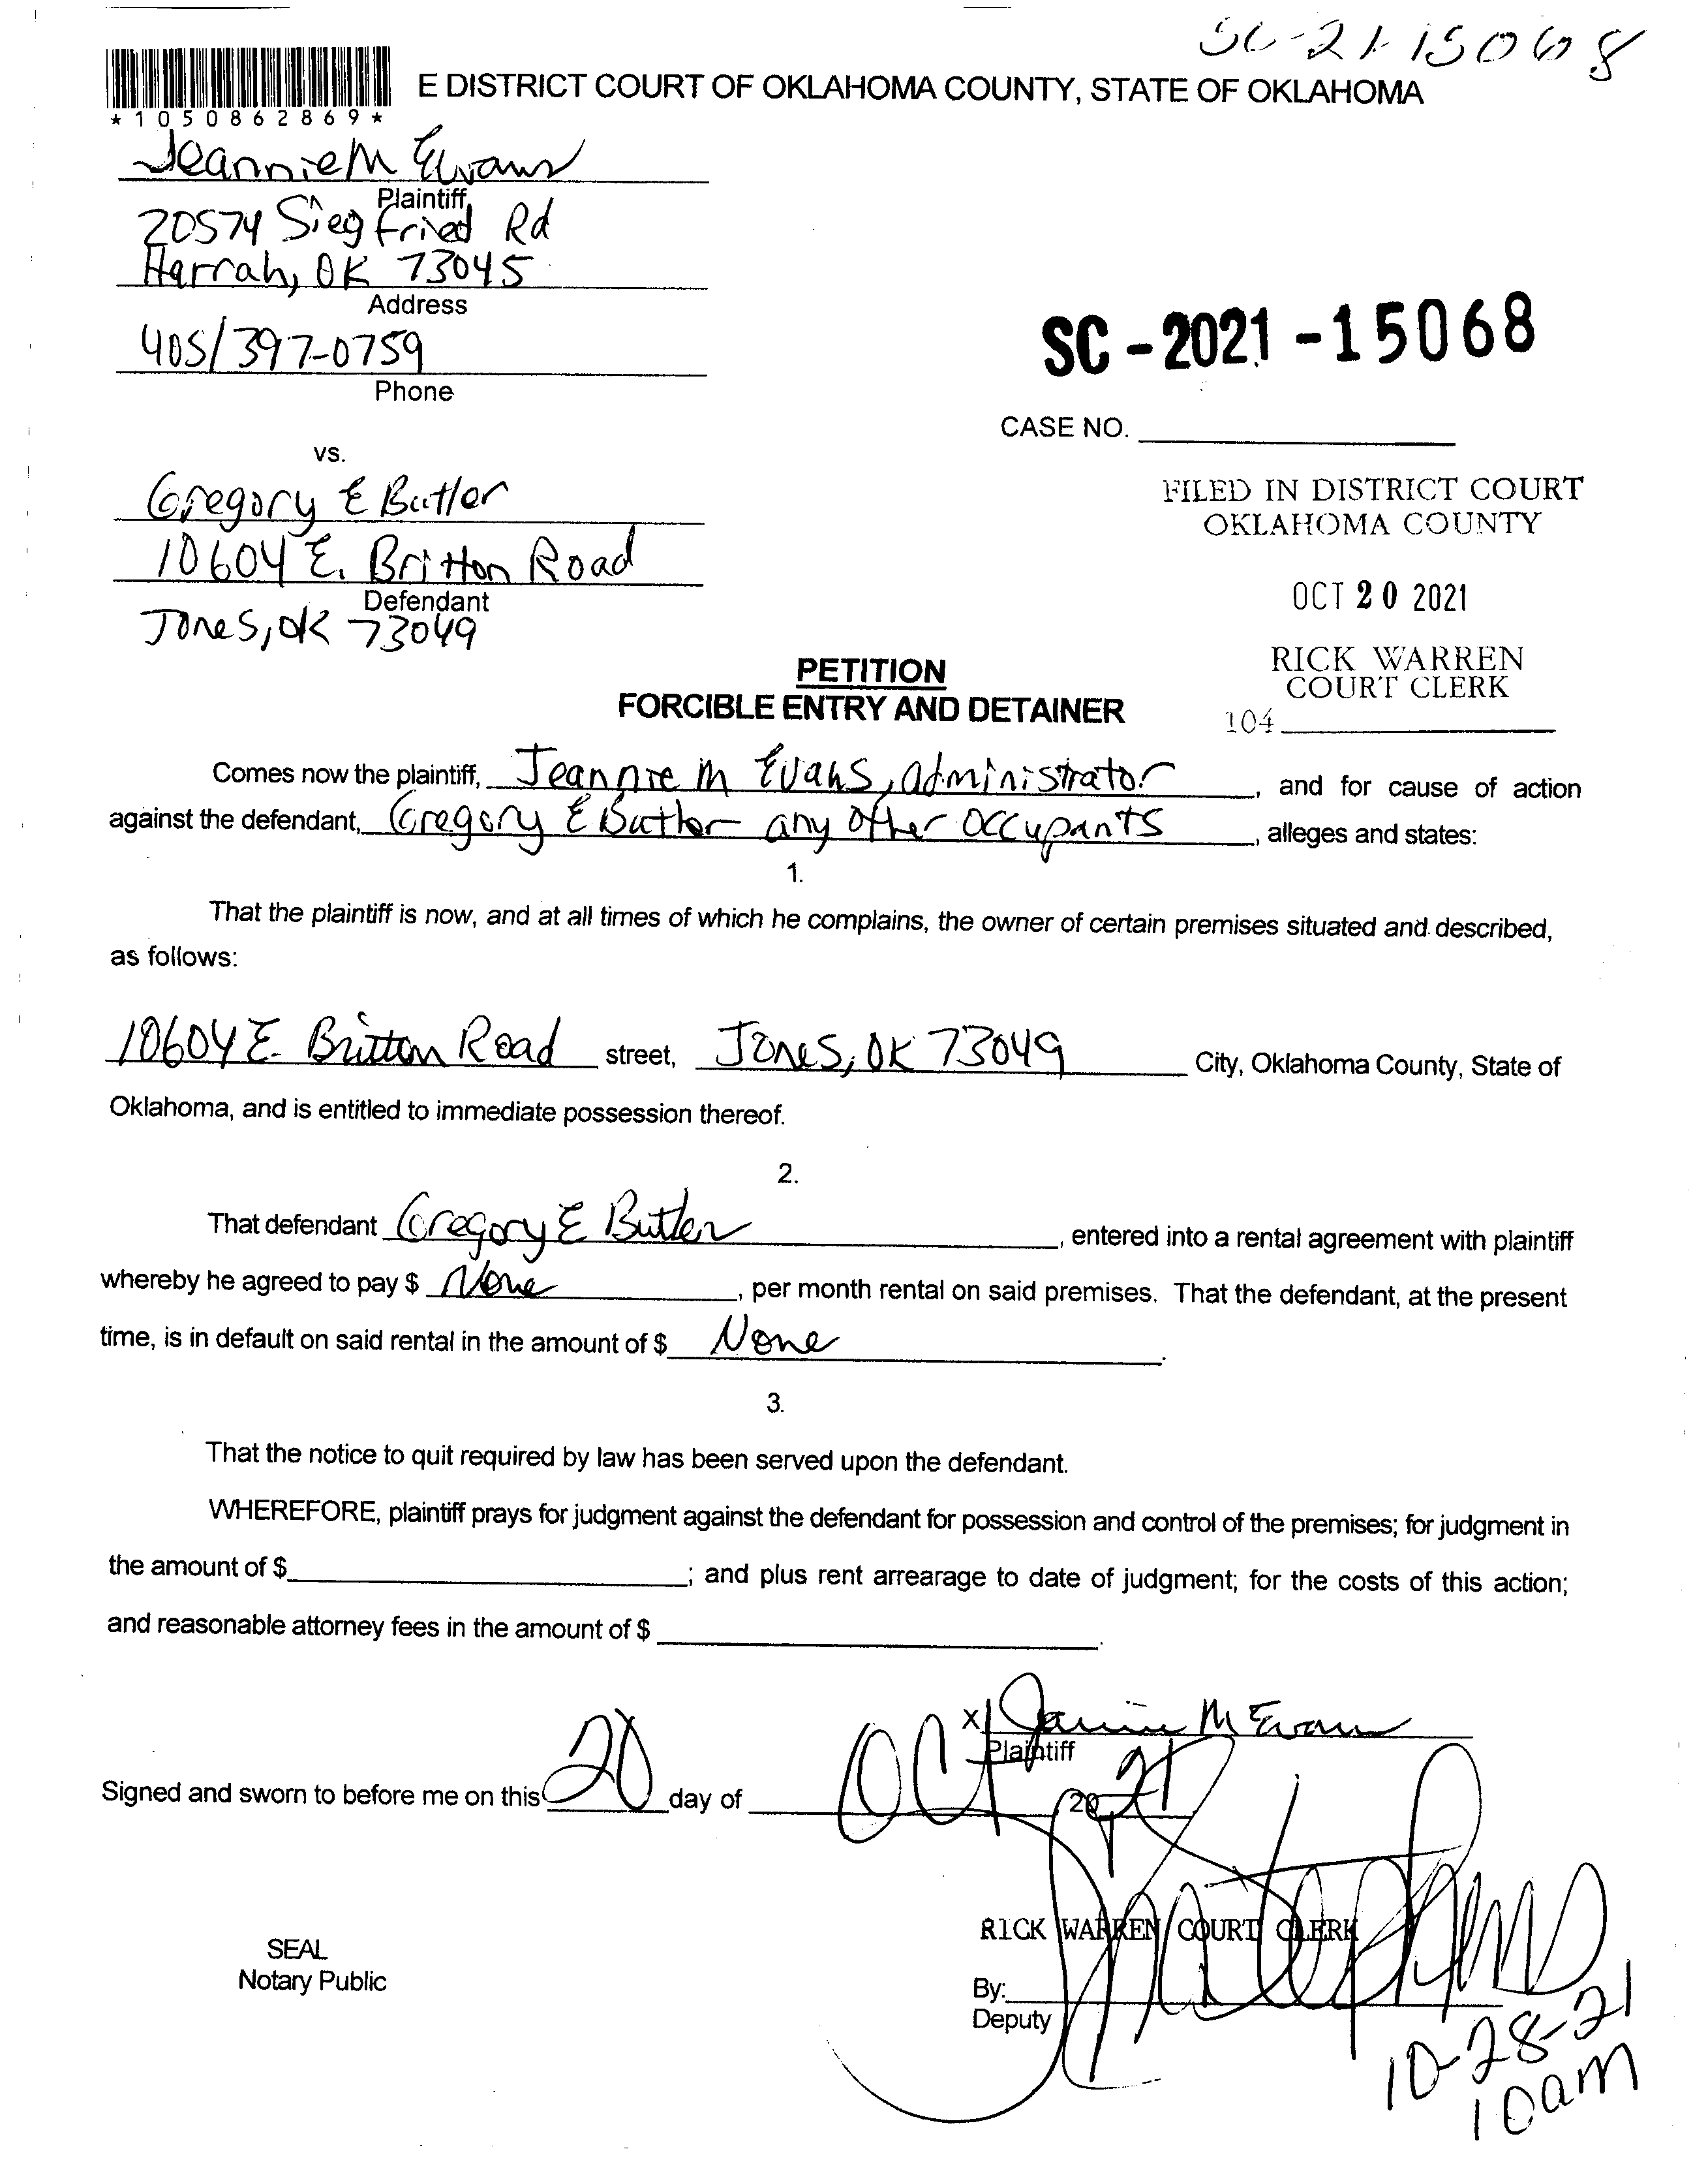 SC-21-15068
E DISTRICT COURT OF OKLAHOMA COUNTY, STATE OF OKLAHOMA
*1050862869*
Jeannie M Evans
Plaintiff
20574 Siegfried Rd
Harrah, OK 73045
Address
405/397-0759
Phone
SC-2021-15068
CASE NO.
vs.
Gregory E Butler
10604 E. Britton Road
Defendant
Jones, OK 73049
FILED IN DISTRICT COURT
OKLAHOMA COUNTY
OCT 20 2021
RICK WARREN
COURT CLERK
104
PETITION
FORCIBLE ENTRY AND DETAINER
Comes now the plaintiff, Jeannie M Evans, administrator, and for cause of action
against the defendant, Gregory E Butler any other occupants, alleges and states:
1.
That the plaintiff is now, and at all times of which he complains, the owner of certain premises situated and described,
as follows:
10604 E. Britton Road street, Jones, OK 73049 City, Oklahoma County, State of
Oklahoma, and is entitled to immediate possession thereof.
2.
That defendant Gregory E Butler, entered into a rental agreement with plaintiff
whereby he agreed to pay $ None, per month rental on said premises. That the defendant, at the present
time, is in default on said rental in the amount of $ None.
3.
That the notice to quit required by law has been served upon the defendant.
WHEREFORE, plaintiff prays for judgment against the defendant for possession and control of the premises; for judgment in
the amount of $ ; and plus rent arrearage to date of judgment; for the costs of this action;
and reasonable attorney fees in the amount of $ .
X Jeannie M Evans
Plaintiff
Signed and sworn to before me on this 20 day of Oct, 2021
RICK WARREN COURT CLERK
SEAL
Notary Public
By:
Deputy
10-28-21
10am